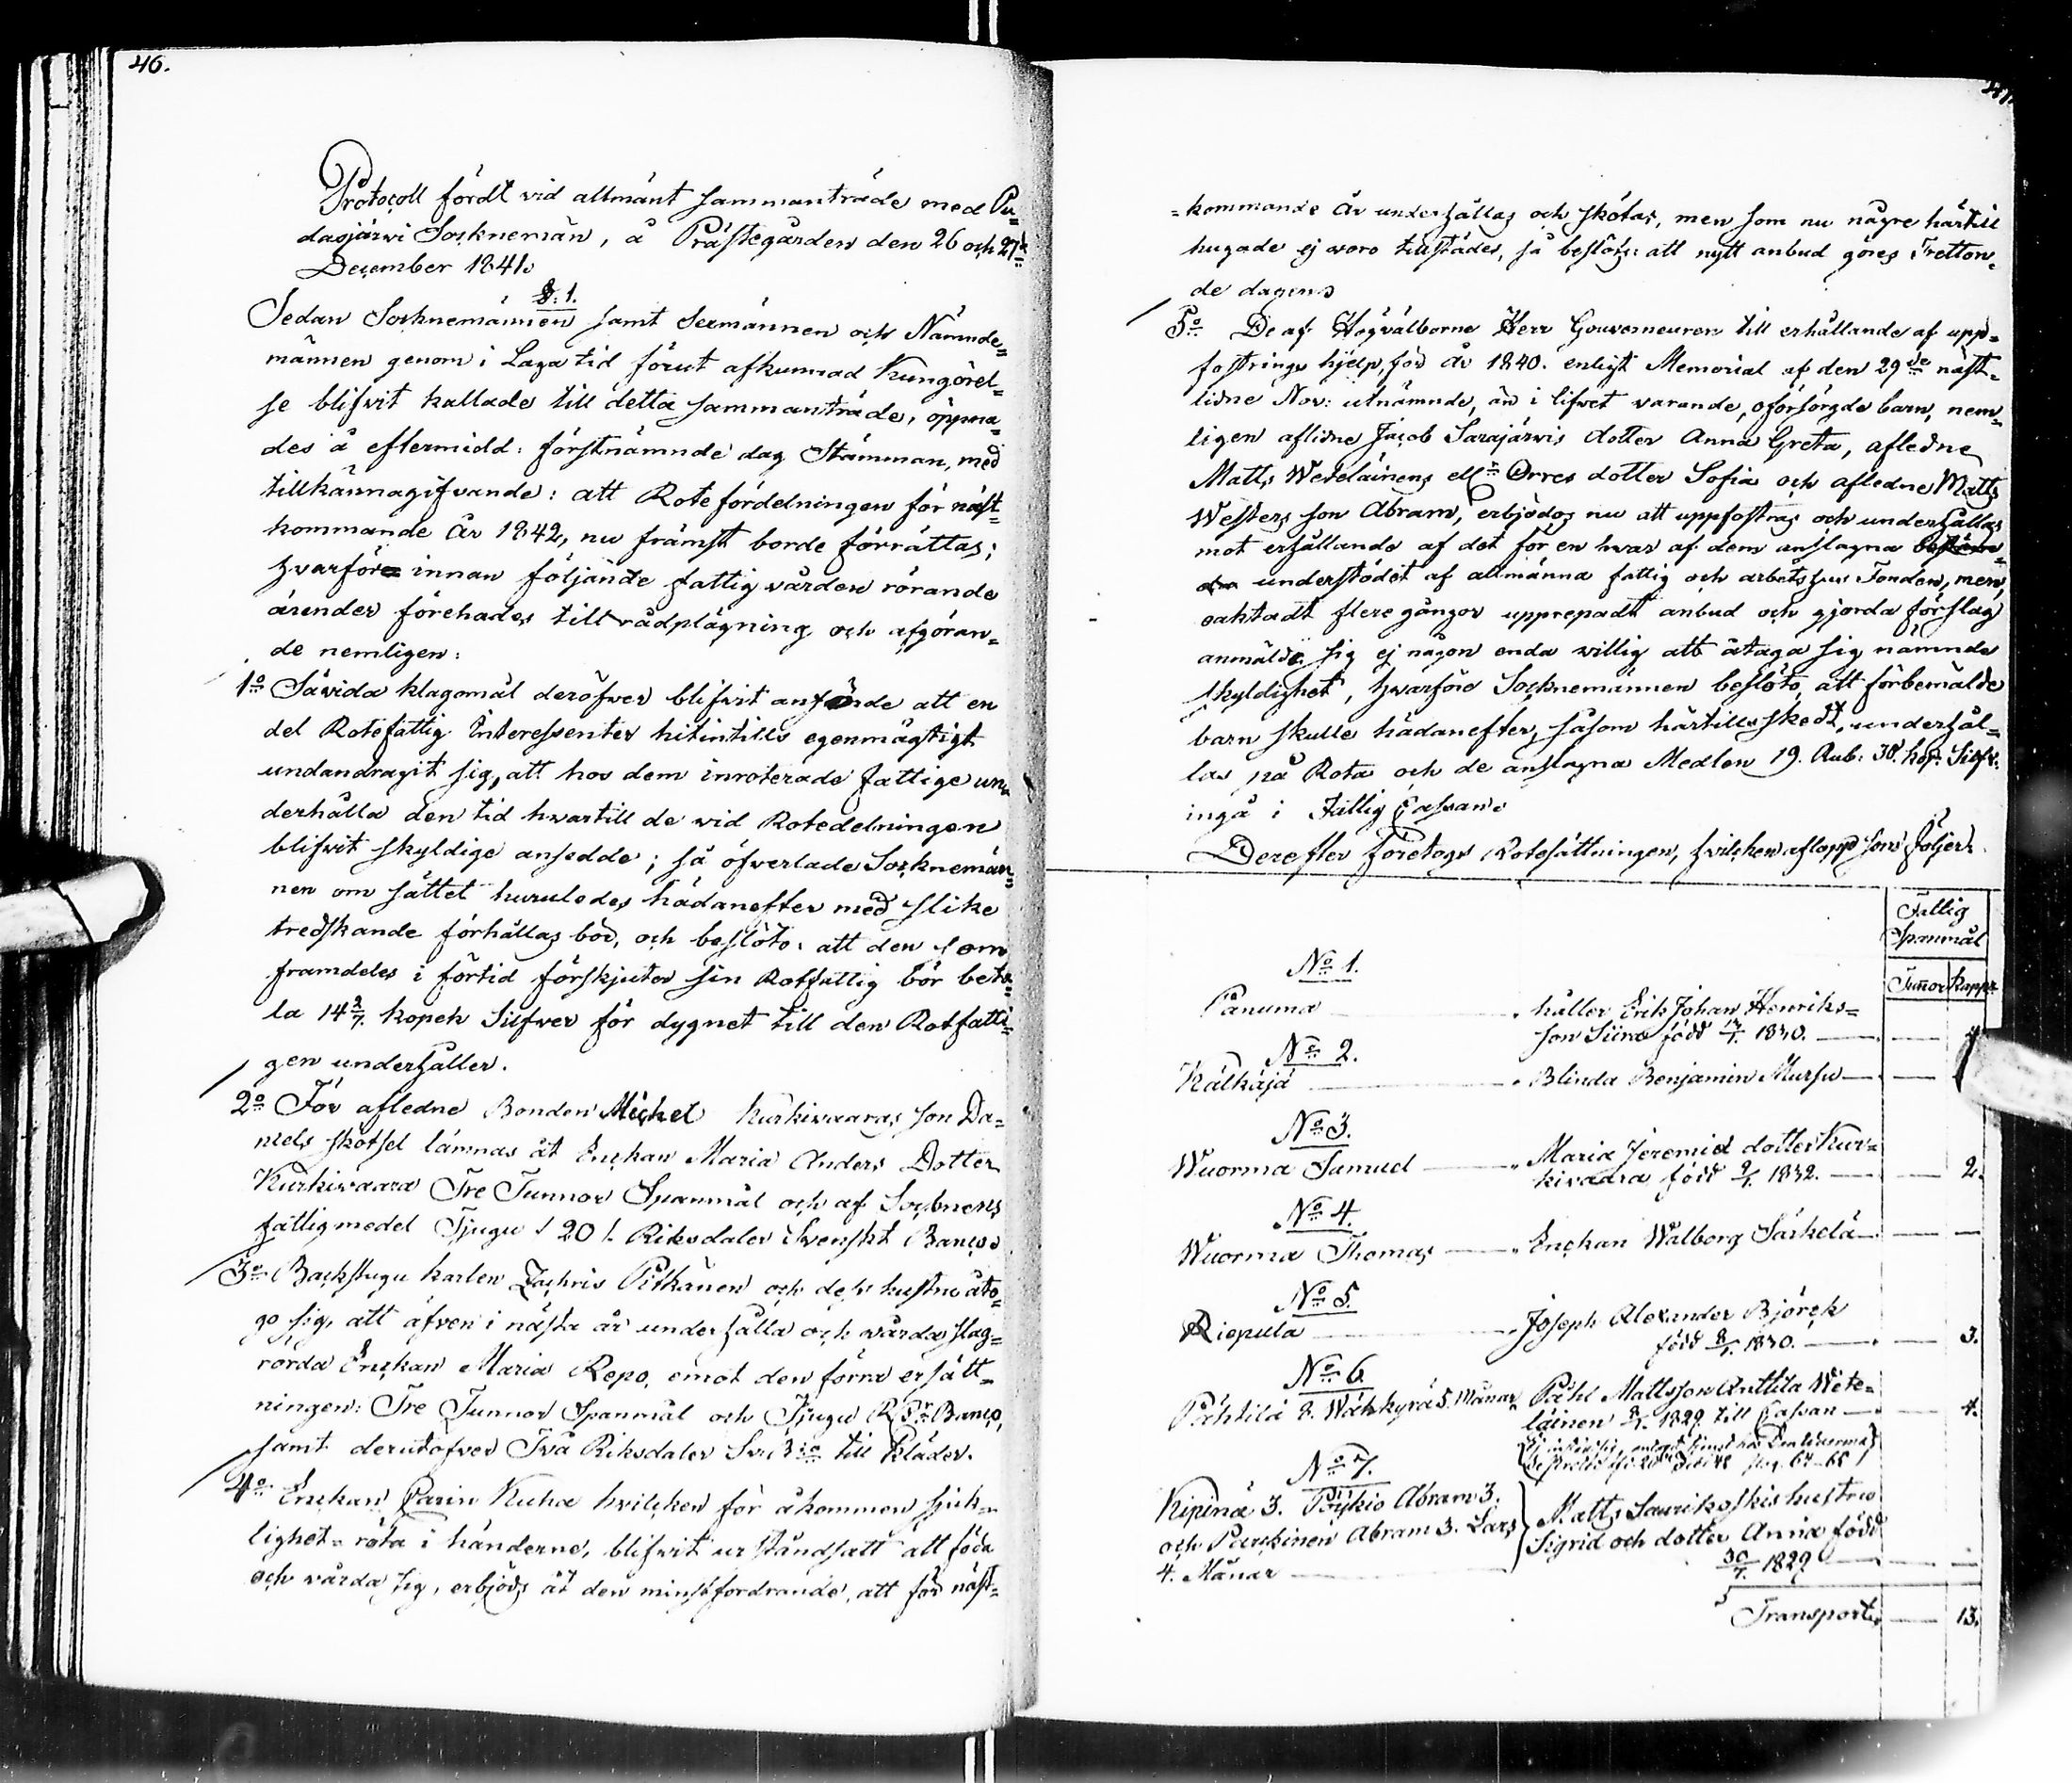 46.
Protocoll fördt vid allmänt sammanträde med Pu=
dasjärwi Socknemän, å Prästegården den 26 och 27de
December 1841.
§: 1.
Sedan Socknemännen samt Sexmännen och Nämnde=
männen genom i Laga tid förut afkunnad Kungörel=
se blifvit kallade till detta sammanträde, öppna=
des å eftermidd: förstnämnde dag Stämman, med
tillkännagifvande: att Rotefördelningen för näst=
kommande år 1842, nu främst borde förrättas;
hvarföre innan följande fattigvården rörande
ärender förehades till rådplägning och afgöran=
de nemligen:
1o Såvida klagomål deröfver blifvit anförde att en
del Rotefattig Interessenter hitintills egenmägtigt
undandragit sig, att hos dem inroterade fattige un=
derhålla den tid hvartill de vid Rotedelningen
blifvit skyldige ansedde; så öfverlade Socknemän=
nen om sättet huruledes hädanefter med slike
tredskande förhållas bör, och beslöto: att den som
framdeles i förtid förskjuter sin Rotfattig bör beta=
la 14 2/7. kopek Silfver för dygnet till den Rotfatti=
gen underhåller.
2o För afledne Bonden Michel Kurkivaaras son Da=
niels skötsel lämnas åt Enckan Maria Anders Dotter
Kurkivaara Tre Tunnor Spanmål och af Socknens
fattigmedel Tjugu /20/. Riksdaler Svenskt Banco.
3o Backstugu karlen Zachris Pitkänen och dess hustru åto=
go sig, att äfven i nästa år underhålla och vårda slag=
rörda Enckan Maria Repo, emot den förra ersätt=
ningen: Tre Tunnor Spanmål och Tjugu Rdr Banco,
samt derutöfver Två Riksdaler Sv: Bco till kläder.
4o Enckan Carin Kuha hvilcken för åkommen sjuk=
lighet= röta i händerne, blifvit urståndsatt att föda
och vårda sig, erbjöds åt den minstfordrande, att för näst=
=kommande År underhållas och skötas, men som nu någre härtill
hugade ej woro tillstädes, så beslöts: att nytt anbud göres Tretton=
de dagen.
5o De af Högvälborne Herr Gouverneuren till erhållande af upp=
fostrings hjelp, för år 1840. enligt Memorial af den 29de näst=
lidne Nov: utnämnde, än i lifvet varande, oförsörgde barn, nem=
ligen aflidne Jacob Sarajärvis dotter Anna Greta, afledne
Matts Wetelainens ellr Orres dotter Sofia och afledne Matts
Westers son Abram, erbjödos nu att uppfostras och underhållas
mot erhållande af det för en hvar af dem anslagna
understödet af allmänna fattig och arbetshus Fonden, men,
oaktadt flere gångor upprepadt anbud och gjorda förslag
anmälde sig ej någon enda willig att åtaga sig nämnde
skyldighet, hvarföre Socknemännen beslöto, att förbemälde
barn skulle hädanefter, såsom härtills skedt, underhål=
las på Rota och de anslagna Medlen 19. Rub: 38. kop: Silfv:
ingå i Fattig Cassan.
Derefter företogs Rotesättningen, hvilcken aflopp som följer:
Fattig
Spanmål
Tunnor Kappar
No 1.
Panuma håller Erik Johan Henriks=
son Siira född 1830. 4
No 2.
Kälkäjä Blinda Benjamin Mursu
No 3.
Wuorma Samuel Maria Jeremid dotter Kur=
kivaara född 1832. 2.
No 4.
Wuorma Thomas Enckan Walborg Särkelä
No 5.
Riepula Joseph Alexander Björck
född 1830. 3.
No 6
Pähtilä 8. Wähkyrä 5. Månar Påhl Mattsson Anttila Wete=
läinen 1829. till Cassan 4.
No 7.
Kipinä 3. Törkiö Abram 3. Matts Saurikoskis hustru
och Parckinen Abram 3. Lars Sigrid och dotter Anna född
4. Månar 30/7. 1829
Transport. 13.